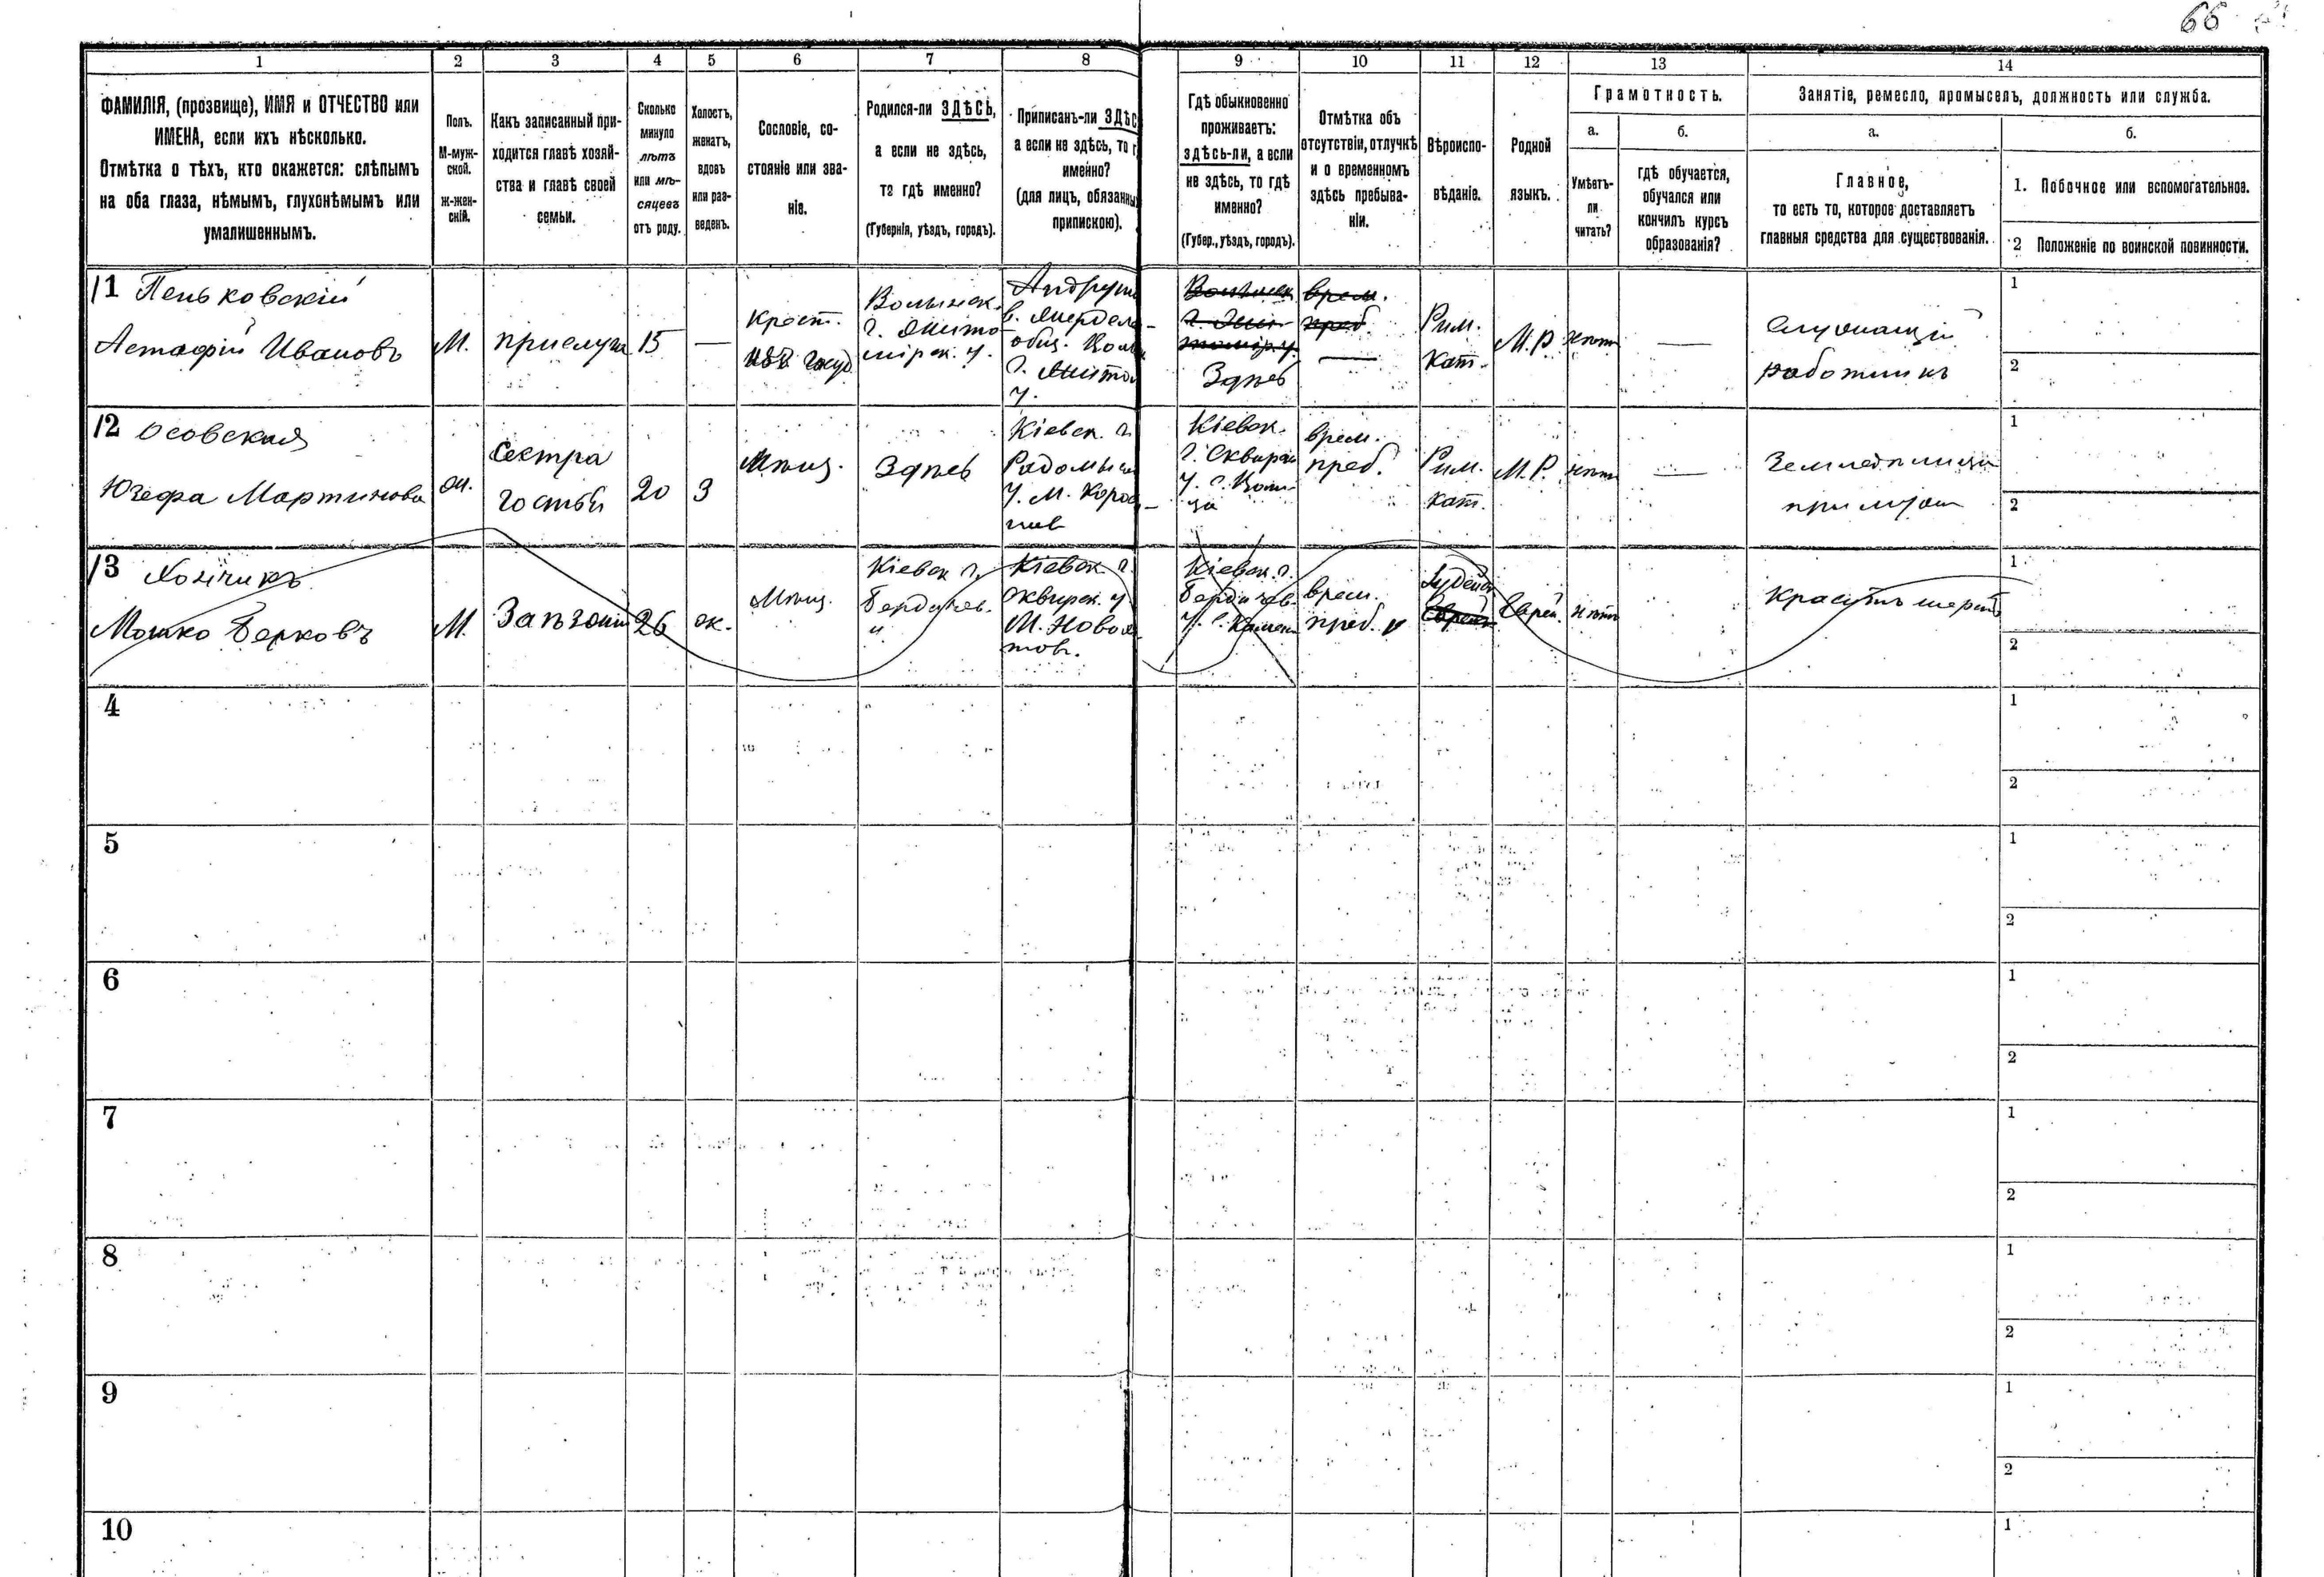 66
1 2 3 4 5 6 7 8 9 10 11 12 13 14
ФАМИЛІЯ, (прозвище), ИМЯ и ОТЧЕСТВО или
ИМЕНА, если ихъ нѣсколько.
Отмѣтка о тѣхъ, кто окажется: слѣпымъ
на оба глаза, нѣмымъ, глухонѣмымъ или
умалишеннымъ.
Полъ.
М-муж-
ской.
ж-жен-
скій.
Какъ записанный при-
ходится главѣ хозяй-
ства и главѣ своей
семьи.
Сколько
минуло
лѣтъ
или мѣ-
сяцевъ
отъ роду.
Холостъ,
женатъ,
вдовъ
или раз-
веденъ.
Сословіе, со-
стояніе или зва-
ніе.
Родился-ли ЗДѢСЬ,
а если не здѣсь,
то гдѣ именно?
(Губернія, уѣздъ, городъ).
Приписанъ-ли ЗДѢС
а если не здѣсь, то г
именно?
(для лицъ, обязанны
припискою).
Гдѣ обыкновенно
проживаетъ:
здѣсь-ли, а если
не здѣсь, то гдѣ
именно?
(Губер., уѣздъ, городъ).
Отмѣтка объ
отсутствіи, отлучкѣ
и о временномъ
здѣсь пребыва-
ніи.
Вѣроиспо-
вѣданіе.
Родной
языкъ.
Грамотность.
а.
Умѣетъ-
ли
читать?
б.
гдѣ обучается,
обучался или
кончилъ курсъ
образованія?
Занятіе, ремесло, промыселъ, должность или служба.
а.
Главное,
то есть то, которое доставляетъ
главныя средства для существованія.
б.
1. Побочное или вспомогательное.
2 Положеніе по воинской повинности.
11 Пеньковскій
Астафій Ивановъ
М.
прислуга
15
—
крест.
Волынск.
г. Жито-
мірск. у.
Здѣсь
врем.
преб.
—
Рим.
Кат.
М.Р.
нѣтъ
—
Служащій
работникъ
1
2
12 Осовская
Юзефа Мартинова
ж.
Сестра
гостья
20
З
Мѣщ.
Здѣсь
Кіевск. г.
Радомы
у. М. Корос
Кіевск.
г. Сквирск
врем.
преб.
Рим.
Кат.
М.Р.
нѣтъ
—
1
2
13
Мошко Берковъ
М.
26
ж.
Мѣщ.
Кіевск г.
Бердичев.
у
Кіевск. г.
Сквирск. у
М. Ново
Кіевск. г.
Бердичев.
врем.
преб.
Іудейск
Еврей.
нѣтъ
Краситъ шерсть
1
2
4
1
2
5
1
2
6
1
2
7
1
2
8
1
2
9
1
2
10
1